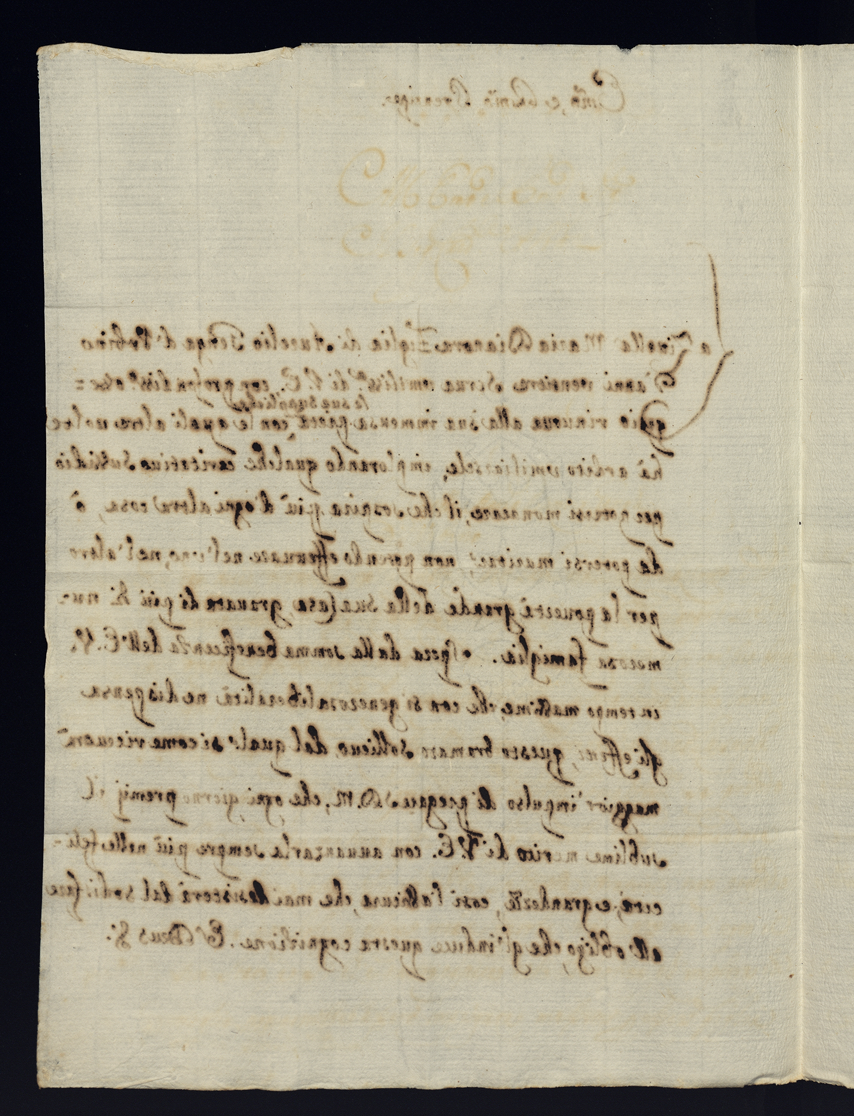 Em̃o, e Rm̃o Prencipe
a Zitella Maria Dianora Figlia di Aurelio d'Urbino
d'anni Serva umiliss.a di V. E. con profondiss.o osse=
quio rinuova alla sua immensa pietà le sue suppliche con le quali altre volte
hà ardito umiliarsele, implorando qualche caritativo Sussidio
per potersi monacare, il che sospira più d'ogni altra cosa, ò
da potersi maritare, non potendo effettuare nel'uno, nel'altro
per la povertà grande della sua Casa gravata di più di nu=
merosa famiglia. Spera dalla somma beneficenza dell'E. V.
in tempo massime, che con sì generosa liberalità ne dispensa
gli effetti, questo bramato sollievo, dal quale sicome riceverà
maggior impulso di pregare S. D. M., che ogni giorno premij il
sublime merito di V. E. con avvanzarla sempre più nelle feli=
cità, e grandezze, così l'assicura, che mai desisterà dal sodisfare
all'obligo, che gl'induce questa cognitione. Deus &.